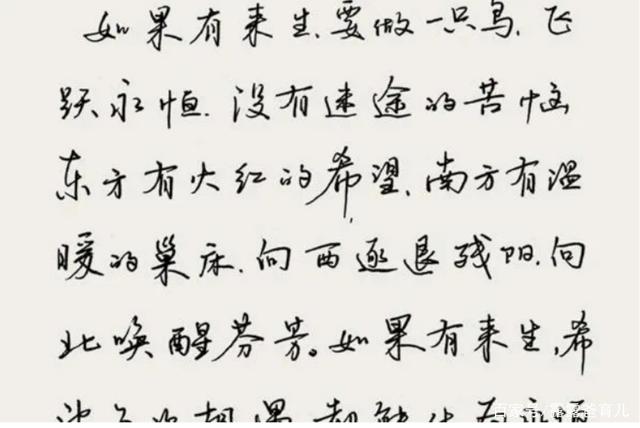 如果有来生.要做一只鸟.飞
跃永恒.没有迷途的苦恼
东方有火红的希望.南方有温
暖的巢床.向西逐退残阳.向
北唤醒芬芳。如果有来生,希
望每次相遇都能化为永恒
百家号/